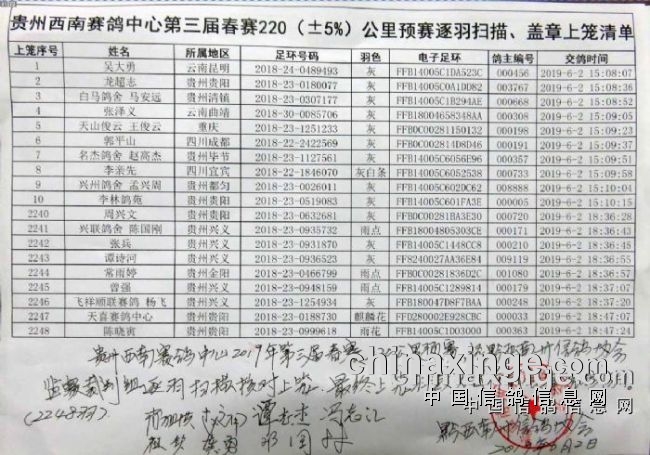 贵州西南赛鸽中心第三届春赛220(±5%)公里预赛逐羽扫描、盖章上笼清单
上笼序号 姓名 所属地区 足环号码 羽色 电子足环 鸽主编号 交鸽时间
1 吴大勇 云南昆明 2018-24-0489493 灰 FFB14005C1DA523C 000456 2019-6-2 15:08:07
2 龙超志 贵州贵阳 2018-23-0180077 灰 FFB14005C0A1DD82 003767 2019-6-2 15:08:36
3 白马鸽舍 马安远 贵州清镇 2018-23-0307177 灰 FFB14005C1B294AE 000668 2019-6-2 15:08:52
4 张泽义 云南曲靖 2018-30-0085706 灰 FFB18004658348AA 000308 2019-6-2 15:09:05
5 天山俊云 王俊云 重庆 2018-23-1251233 灰 FFB0C00281150132 000198 2019-6-2 15:09:23
6 郭平山 四川成都 2018-22-2422569 灰 FFB0C002814D8D46 000191 2019-6-2 15:09:37
7 名杰鸽舍 赵高杰 贵州毕节 2018-23-1127561 灰 FFB14005C6056E96 000357 2019-6-2 15:09:51
8 李亲先 四川宜宾 2018-22-1846070 灰白条 FFB14005C6052538 000733 2019-6-2 15:09:58
9 兴州鸽舍 孟兴周 贵州都匀 2018-23-0026011 灰 FFB14005C602DC62 008888 2019-6-2 15:10:04
10 李林鸽苑 贵州贵阳 2018-23-0519083 灰 FFB14005C601FA3E 000005 2019-6-2 15:10:15
2240 周兴文 贵州贵阳 2018-23-0632681 灰 FFB0C00281BA3E30 000720 2019-6-2 18:36:28
2241 兴联鸽舍 陈国刚 贵州兴义 2018-23-0935732 雨点 FFB18004805303CE 000171 2019-6-2 18:36:43
2242 张兵 贵州兴义 2018-23-0931870 灰 FFB14005C1448CC8 000210 2019-6-2 18:36:45
2243 谭诗河 贵州兴义 2018-23-0936523 灰 FF8240027AA36E84 009119 2019-6-2 18:36:55
2244 常雨婷 贵州金阳 2018-23-0466799 雨点 FFB0C00281836D2C 001080 2019-6-2 18:36:57
2245 曾强 贵州兴义 2018-23-0948159 雨点 FFB14005C1289814 000179 2019-6-2 18:37:07
2246 飞祥顺联赛鸽 杨飞 贵州兴义 2018-23-1254934 灰 FFB180047D8F7BAA 000248 2019-6-2 18:37:20
2247 天喜赛鸽中心 贵州贵阳 2018-23-0188730 麒麟花 FFD280002E928CBC 000333 2019-6-2 18:47:21
2248 陈晓寅 贵州贵阳 2018-23-0999618 雨花 FFB14005C1D03000 000363 2019-6-2 18:47:24
贵州西南赛鸽中心2019年第三届春赛220公里预赛 黔西南州信鸽协会
监赛裁判组逐羽扫描核对上笼 最终上笼
(2248羽)
黔西南州信鸽协会
2019年6月2日
www.chinaxinge.com
中国信鸽信息网